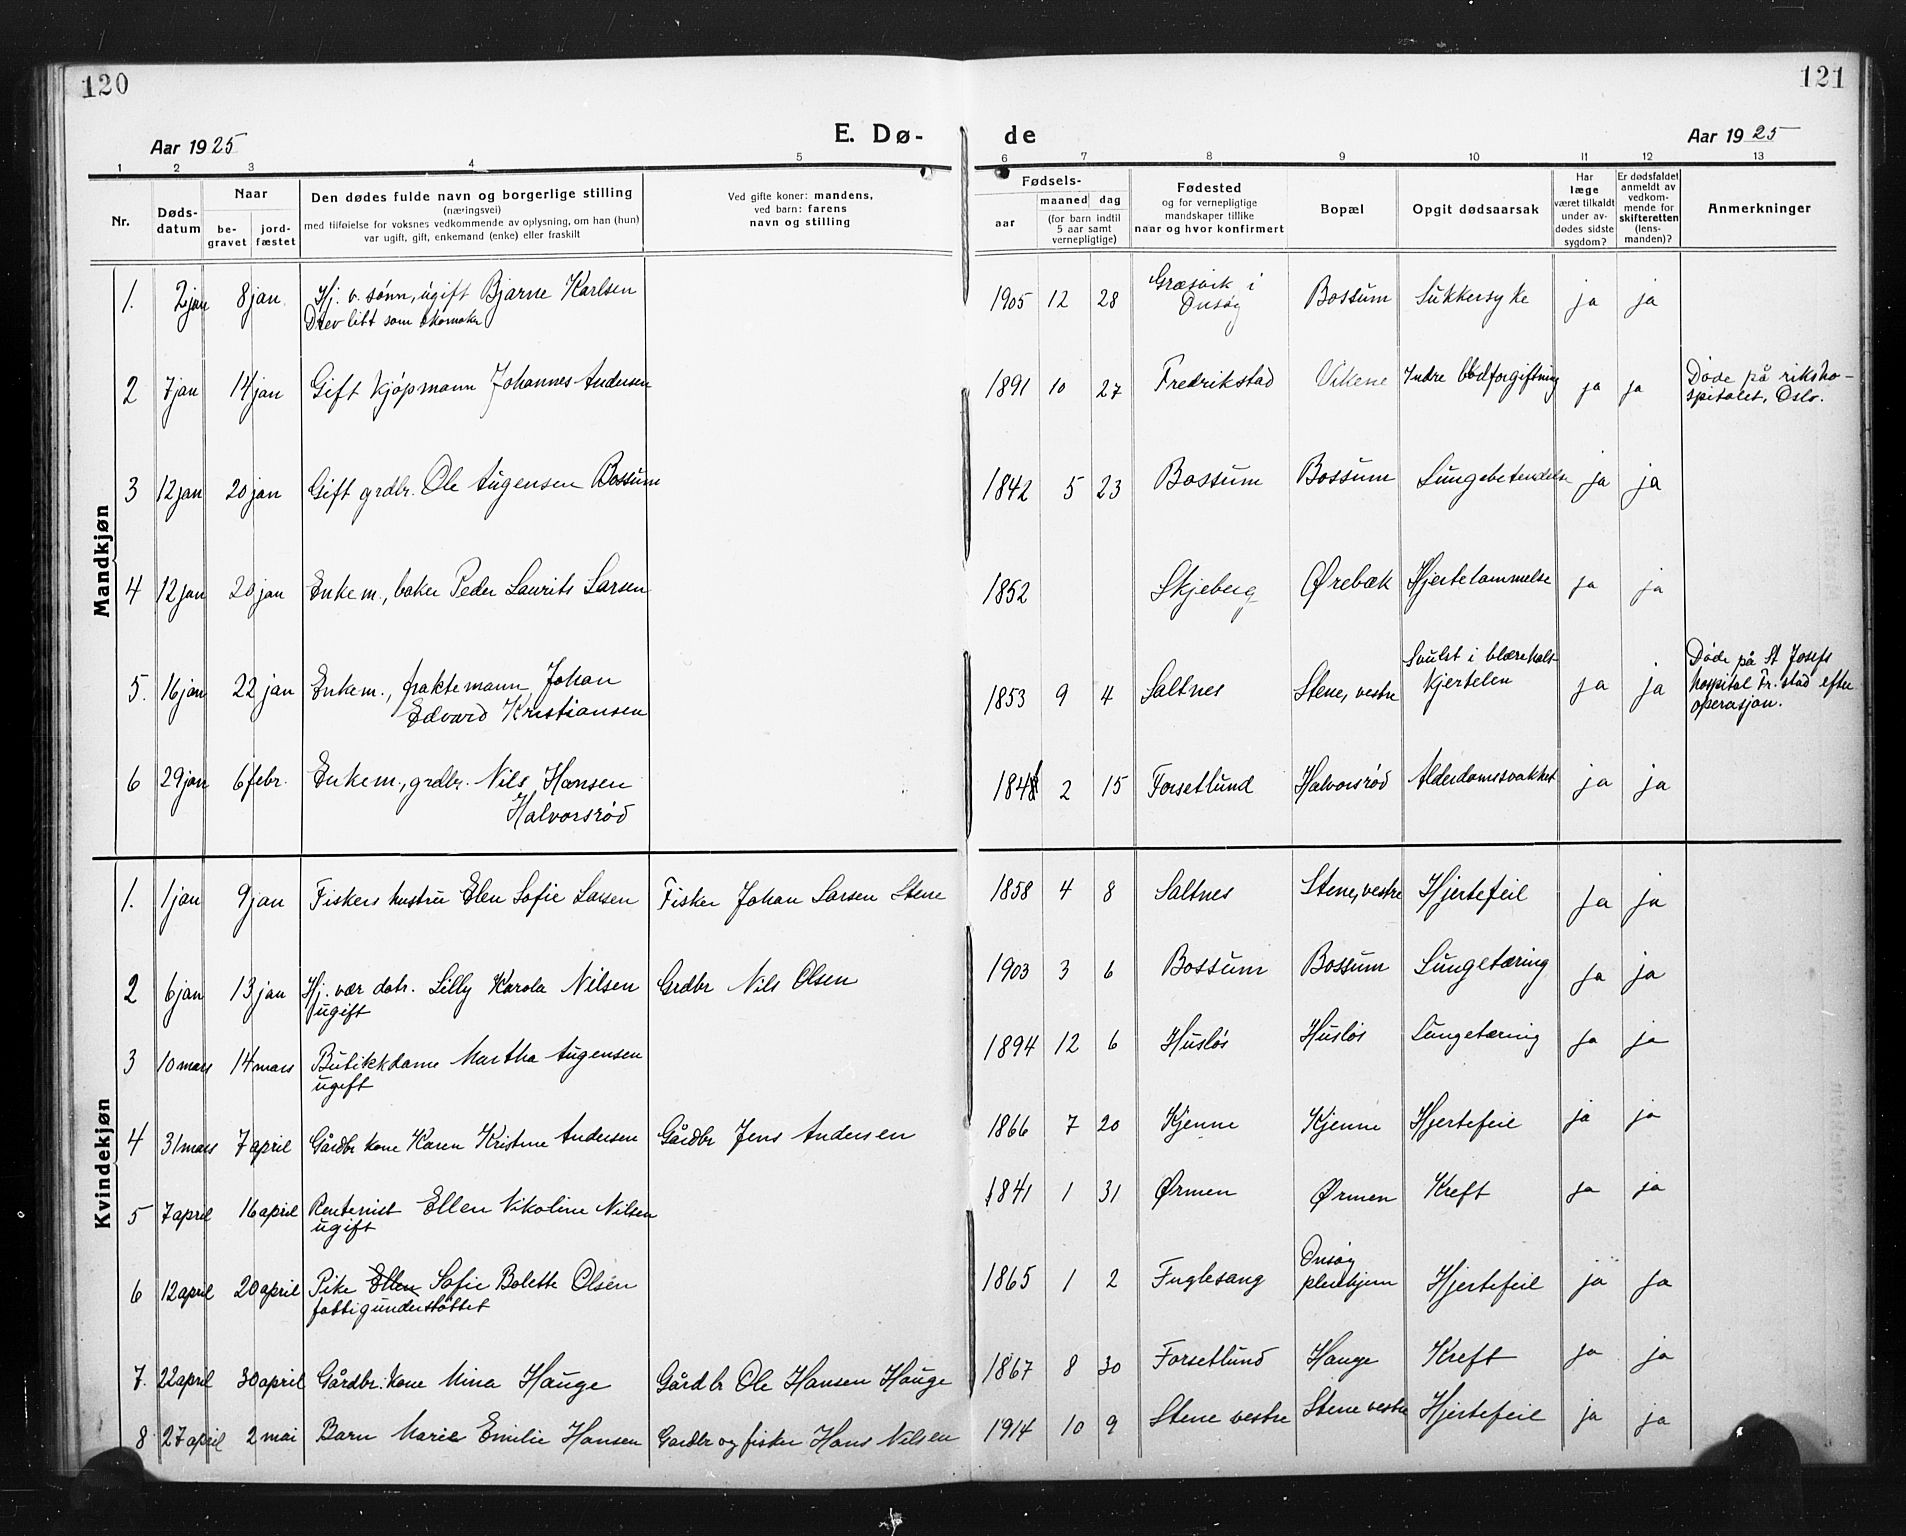 120
121
Aar 1925
E. Dø-
de
Aar 1925
1 2 3 4 5 6 7 8 9 10 11 12 13
Nr.
Døds-
datum
Naar
be-
gravet
jord-
fæstet
Den dødes fulde navn og borgerlige stilling
(næringsvei)
med tilføielse for voksnes vedkommende av oplysning, om han (hun)
var ugift, gift, enkemand (enke) eller fraskilt
Ved gifte koner: mandens,
ved barn: farens
navn og stilling
Fødsels-
aar
maaned dag
(for barn indtil
5 aar samt
vernepligtige)
Fødested
og for vernepligtige
mandskaper tillike
naar og hvor konfirmert
Bopæl
Opgit dødsaarsak
Har
læge
været tilkaldt
under av-
dødes sidste
sygdom?
Er dødsfaldet
anmeldt av
vedkom-
mende for
skifteretten
(lens-
manden)?
Anmerkninger
Mandkjøn
1. 2 jan 8 jan Hj. v. sønn, ugift Bjarne Karlsen 1905 12 28 Græsvik i Bossum Sukkersyke ja ja
Drev litt som skomaker Onsøy
2 7 jan 14 jan Gift kjøpmann Johannes Andersen 1891 10 27 Fredrikstad Vikene Indre blodforgiftning ja ja Døde på riksho-
spitalet, Oslo.
3 12 jan 20 jan Gift grdbr. Ole Augensen Bossum 1842 5 23 Bossum Bossum Lungebetendelse ja ja
4 12 jan 20 jan Enkem., baker Peder Laurits Larsen 1852 Skjeberg Ørebæk Hjertelammelse ja ja
5. 16 jan 22 jan Enkem., fraktemann Johan 1853 9 4 Saltnes Stene, vestre Svulst i blærehals- ja ja Døde på St Josefs
Edvard Kristiansen kjertelen hospital Fr.stad efter
operasjon.
6 29 jan 6 febr. Enkem., grdbr. Nils Hansen 184 2 15 Forsetlund Halvorsrød Alderdomssvakhet ja ja
Halvorsrød
Kvindekjøn
1. 1 jan 9 jan Fiskers hustru Elen Sofie Larsen Fisker Johan Larsen Stene 1858 4 8 Saltnes Stene, vestre Hjertefeil ja ja
2 6 jan 13 jan Hj. vær datr. Lilly Karola Nilsen Grdbr Nils Olsen 1903 3 6 Bossum Bossum Lungetæring ja ja
ugift
3 10 mars 14 mars Butikkdame Martha Augensen 1894 12 6 Husløs Husløs Lungetæring ja ja
ugift
4 31 mars 7 april Gårdbr kone Karen Kristine Andersen Gårdbr Jens Andersen 1866 7 20 Kjenne Kjenne Hjertefeil ja ja
5 7 april 16 april Rentenist Ellen Nikoline Nilsen 1841 1 31 Ørmen Ørmen Kreft ja ja
ugift
6 12 april 20 april Pike Ellen Sofie Bolette Olsen 1865 1 2 Fuglesang Onsøy Hjertefeil ja ja
fattigunderstøttet pleiehjem
7. 22 april 30 april Gårdbr. kone Mina Hauge Gårdbr Ole Hansen Hauge 1867 8 30 Forsetlund Hauge Kreft ja ja
8 27 april 2 mai Barn Marie Emilie Hansen Gardbr og fisker Hans Nilsen 1914 10 9 Stene vestre Stene vestre Hjertefeil ja ja